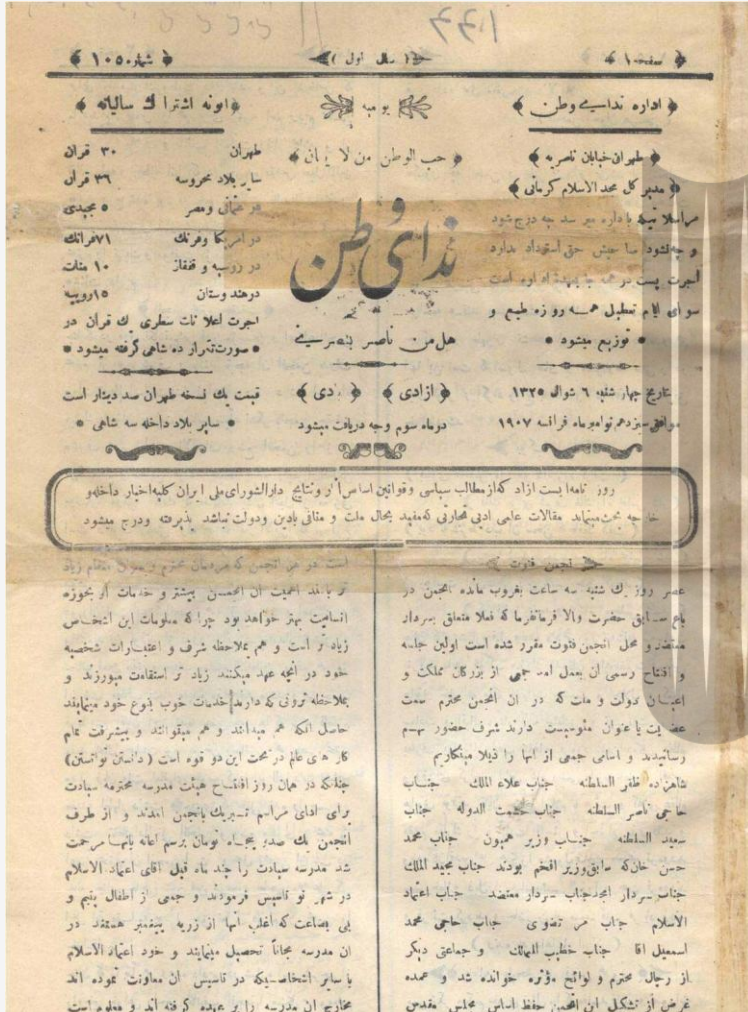 صفحه ۱
سال اول
شماره ۱۰۵
اداره ندای وطن
طهران خیابان ناصریه
مدیر کل مجد الاسلام کرمانی
مراسلاتیکه باداره میرسد چه درج شود
و چه نشود صاحبش حق استرداد ندارد
اجرت پست در همه جا بعهده اداره است
سوای ایام تعطیل همه روزه طبع و
توزیع میشود
بتاریخ چهار شنبه ۶ شوال ۱۳۲۵
موافق سیزدهم نوامبر ماه فرانسه ۱۹۰۷
یومیه
حب الوطن من الایمان
ندای وطن
هل من ناصر ینصرنی
ازادی
دوماه سوم وجه دریافت میشود
ابونه اشتراک سالیانه
طهران ۳۰ قران
سایر بلاد محروسه ۳۶ قران
در عثمانی ومصر ۵ مجیدی
در امریکا وفرنک ۱۷ فرانک
در روسیه و قفقاز ۱۰ منات
در هندوستان ۱۵ روپیه
اجرت اعلانات سطری یک قران در
صورت تکرار ده شاهی گرفته میشود
قیمت یک نسخه طهران صد دینار است
سایر بلاد داخله سه شاهی
روزنامه ایست ازاد که از مطالب سیاسی وقوانین اساسی و نتایج دارالشورای ملی ایران کلیه اخبار داخله و
خارجه بحث مینماید مقالات علمی ادبی تجارتی که مفید بحال ملت و منافی بادین ودولت نباشد پذیرفته ودرج میشود
انجمن فتوت
عصر روز یک شنبه سه ساعت بغروب مانده انجمن در
باغ سابق حضرت والا فرمانفرما که فعلا متعلق بسردار
معتضد و محل انجمن فتوت مقرر شده است اولین جلسه
و افتتاح رسمی آن بعمل امد جمعی از بزرکان مملکت و
اعیان دولت و ملت که در ان انجمن محترم سمت
عضویت یا عنوان دارند شرف حضور بهم
رسانیدند و اسامی جمعی از انها را ذیلا مینکاریم
شاهزاده ظفر السلطنه جناب علاء الملک جناب
حاجی ناصر السلطنه جناب حشمت الدوله جناب
سعید السلطنه جناب وزیر همیون جناب محمد
حسن خان که سابق وزیر افخم بودند جناب مجید الملک
جناب سردار امجد جناب سردار معتضد جناب اعتماد
الاسلام جناب مرتضوی جناب حاجی محمد
اسمعیل اقا جناب خطیب الممالک و جماعتی دیگر
از رجال محترم و لوائح مؤثره خوانده شد و عمده
غرض از تشکیل این انجمن حفظ اساس مجلس مقدس
است در هر انجمن که مردمان محترم و زیاد
تر باشند اهمیت ان انجمن بیشتر و خدمات او بحوزه
انسانیت بهتر خواهد بود چرا که معلومات این اشخاص
زیاد تر است و هم بملاحظه شرف و اعتبارات شخصیه
خود در انچه عهد میکنند زیاد تر استقامت میورزند و
بملاحظه ثروتی که دارند خدمات خوب بنوع خود مینمایند
حاصل انکه هم میدانند و هم میتوانند و پیشرفت تمام
کار های عالم در تحت این دو قوه است (دانستن توانستن)
چنانکه در همان روز افتتاح هیئت مدرسه محترمه سیادت
برای ادای مراسم تبریک بانجمن امدند و از طرف
انجمن یک صد و پنجاه تومان برسم اعانه بانها مرحمت
شد مدرسه سیادت را چند ماه قبل اقای اعتماد الاسلام
در شهر نو تاسیس فرمودند و جمعی از اطفال یتیم و
بی بضاعت که اغلب انها از ذریه پیغمبر هستند در
ان مدرسه مجاناً تحصیل مینمایند و خود اعتماد الاسلام
با سایر اشخاصیکه در تاسیس ان معاونت نموده اند
مخارج ان مدرسه را بر عهده گرفته اند و معلوم است